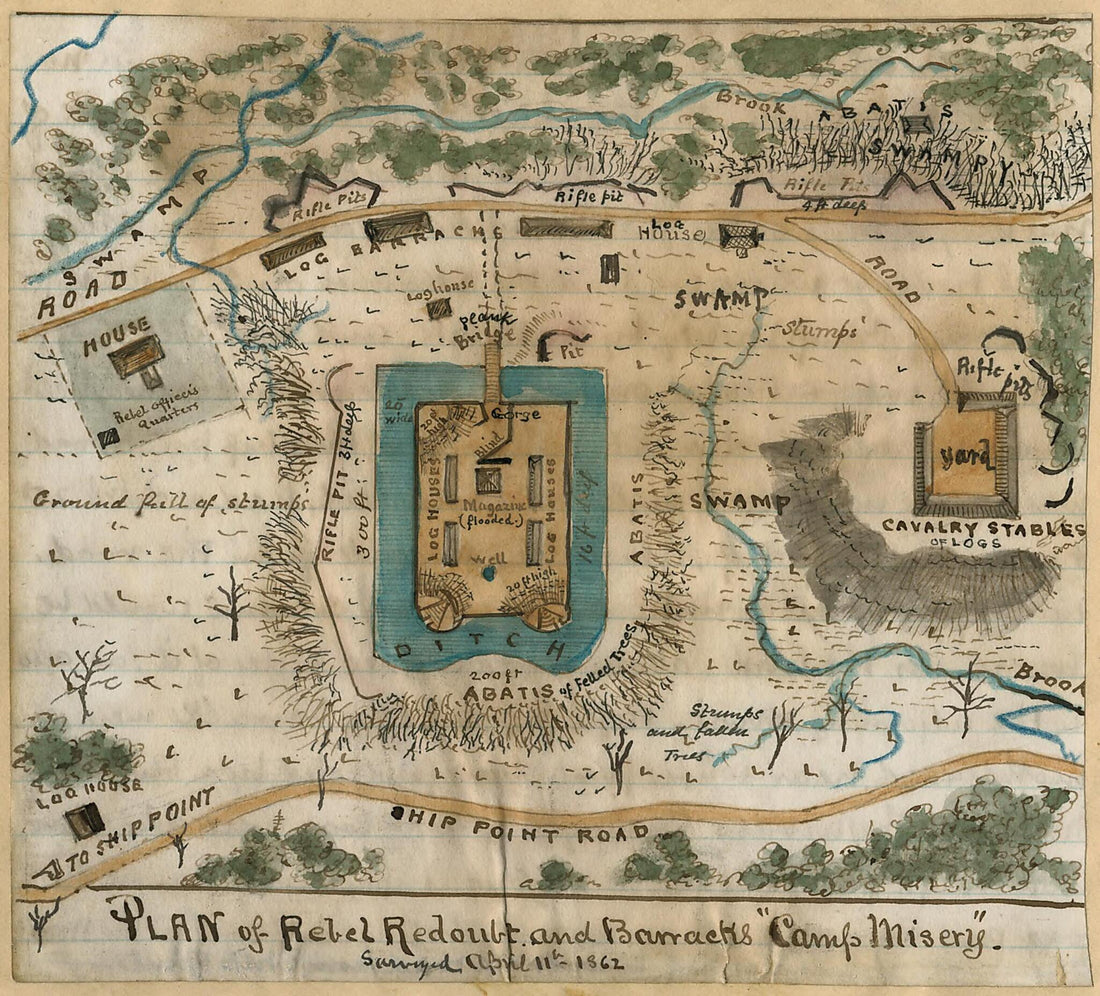 Brook
ABATIS
SWAMPY
Rifle Pits
Rifle pit
Rifle Pits
4 ft deep
SWAMP
ROAD
LOG BARRACKS
LOG
HOUSE
ROAD
Log house
plank
Bridge
Pit
SWAMP
Stumps
HOUSE
Rebel officers
quarters
Rifle
pits
25
wide
20 ft
high
Gorge
Blind
yard
RIFLE PIT 3 ft deep
300 ft
LOG HOUSES
Magazine
(flooded.)
LOG HOUSES
16 ft deep
ABATIS
Ground full of stumps
SWAMP
CAVALRY STABLES
OF LOGS
Well
20 ft high
DITCH
200 ft
ABATIS of Felled Trees
Brook
Stumps
and fallen
Trees
LOG HOUSE
TO SHIP POINT
SHIP POINT ROAD
PLAN of Rebel Redoubt and Barracks "Camp Misery".
Surveyed April 11th 1862